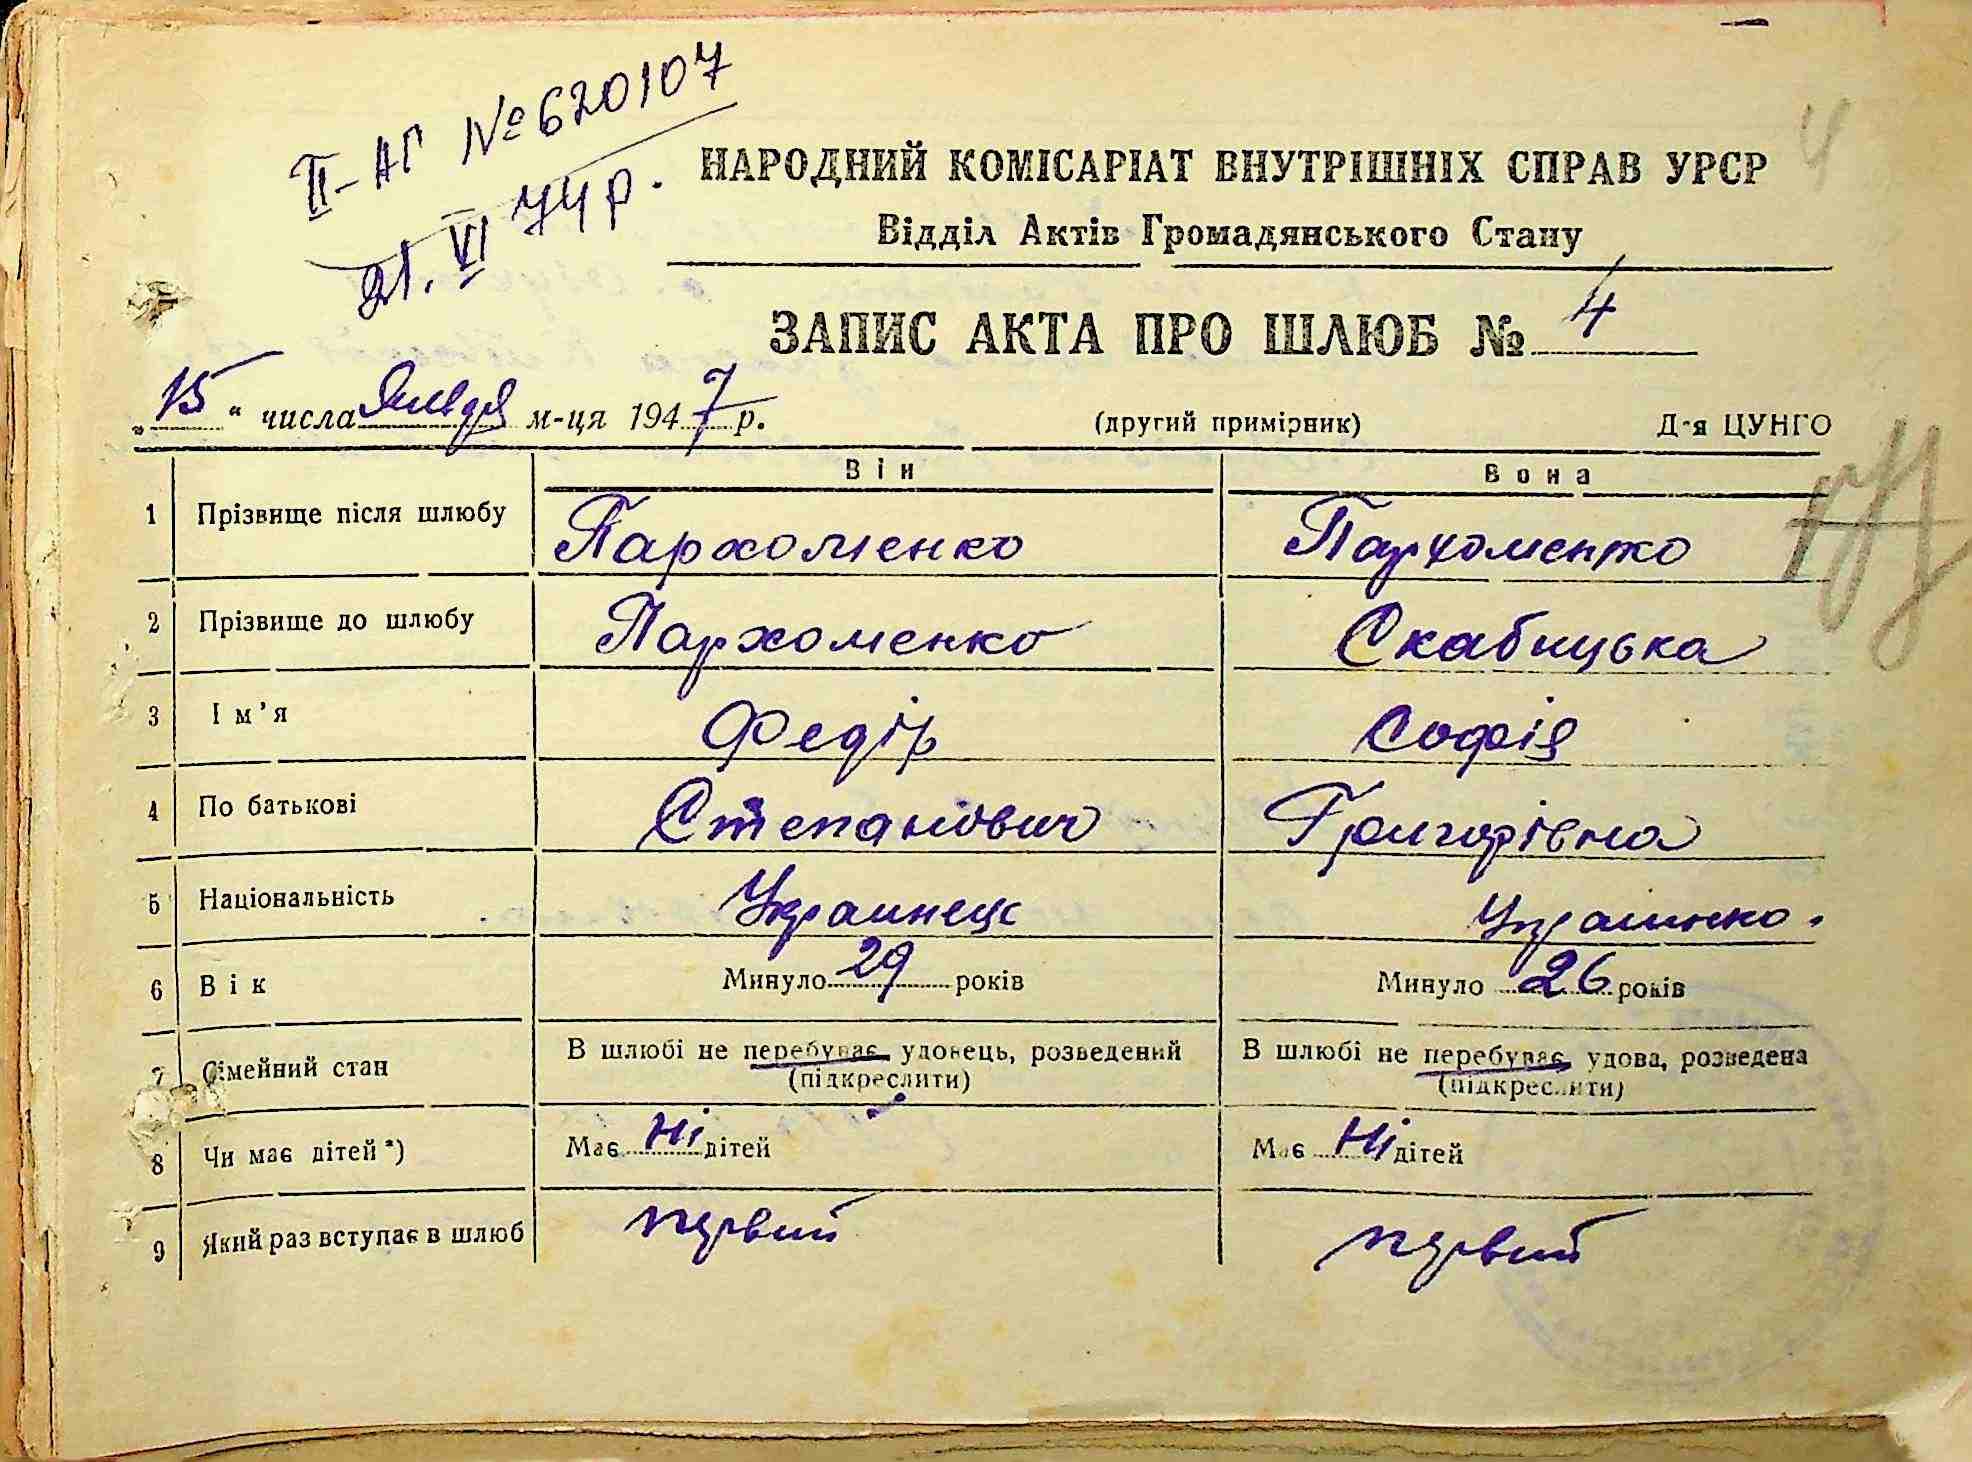 ІІ-АГ №620107
21. VI 74 р.
НАРОДНИЙ КОМІСАРІАТ ВНУТРІШНІХ СПРАВ УРСР
4
Відділ Актів Громадянського Стану
ЗАПИС АКТА ПРО ШЛЮБ № 4
„15“ числа Января м-ця 1947 р. (другий примірник) Д-я ЦУНГО
Він Вона
1 Прізвище після шлюбу Пархоменко Пархоменко
2 Прізвище до шлюбу Пархоменко Скабицька
3 Ім’я Федір Софія
4 По батькові Степанович Григорівна
5 Національність Украинець Украинка.
6 Вік Минуло 29 років Минуло 26 років
7 Сімейний стан В шлюбі не перебуває, удовець, розведений В шлюбі не перебуває, удова, розведена
(підкреслити) (підкреслити)
8 Чи має дітей*) Має Ні дітей Має Ні дітей
9 Який раз вступає в шлюб первий первий